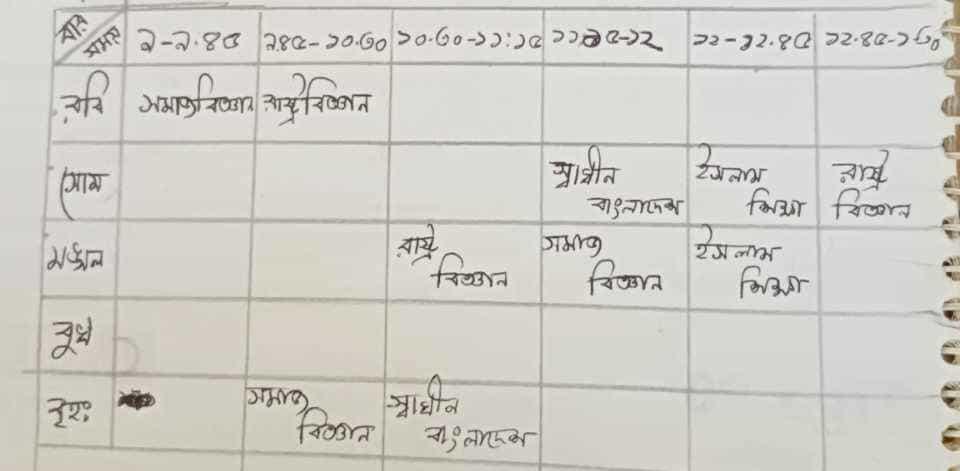 বার সময় ৯-৯.৪৫ ৯.৪৫-১০.৩০ ১০.৩০-১১:১৫ ১১.১৫-১২ ১২-১২.৪৫ ১২.৪৫-১.৩০
রবি সমাজবিজ্ঞান রাষ্ট্রবিজ্ঞান
সোম স্বাধীন বাংলাদেশ ইসলাম শিক্ষা রাষ্ট্র বিজ্ঞান
মঙ্গল রাষ্ট্র বিজ্ঞান সমাজ বিজ্ঞান ইসলাম শিক্ষা
বুধ
বৃহঃ সমাজ বিজ্ঞান স্বাধীন বাংলাদেশ